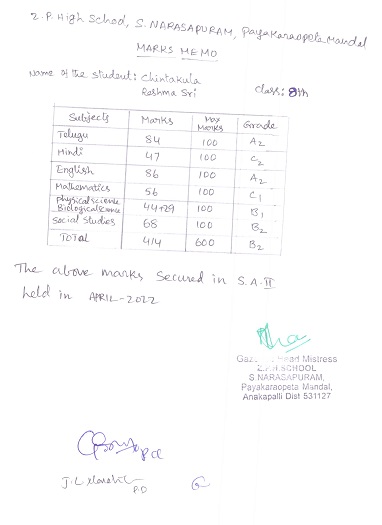 Z.P. High School, S. NARASAPURAM, Payakaraopeta Mandal
MARKS MEMO
Name of the student: Chintakula
Reshma Sri
class: 8th
Subjects Marks Max Marks Grade
Telugu 84 100 A2
Hindi 47 100 C2
English 86 100 A2
Mathematics 56 100 C1
physical science
Biological science 44+29 100 B1
Social Studies 68 100 B2
TOTAL 414 600 B2
The above marks secured in S.A-II
held in APRIL-2022
Mistress
Z.P.H.SCHOOL
S.NARASAPURAM,
Payakaraopeta Mandal,
Anakapalli Dist 531127